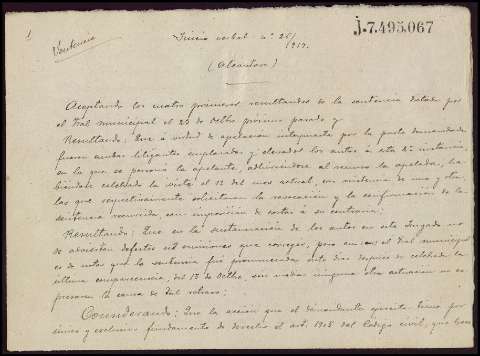 1
Sentencia
Juicio verbal nº 26/
1917.
j.7.495.067
(Alcántara)
Aceptando los cuatro primeros resultandos de la sentencia dictada por
el Tral municipal el 25 de Octbre próximo pasado y
Resultando: Que á virtud de apelación interpuesta por la parte demandada
fueron ambos litigantes emplazados y elevados los autos á esta 2ª instancia,
en la que se personó la apelante, adhiriéndose al recurso la apelada, ha-
biéndose celebrado la vista el 12 del mes actual, con asistencia de una y otra,
las que respectivamente solicitaron la revocación y la confirmación de la
sentencia recurrida, con imposición de costas á su contraria;
Resultando: Que en la sustanciación de los autos en este Juzgado no
se advierten defectos ni omisiones que corregir, pero en el Tral municipal
es de notar que la sentencia fué pronunciada ocho dias después de celebrada la
última comparecencia, del 17 de Octbre, sin mediar ninguna otra actuación ni ex-
presarse la causa de tal retraso;
Considerando: Que la acción que el demandante ejercita tiene por
único y exclusivo fundamento de derecho el art. 1908 del Código civil, que hace